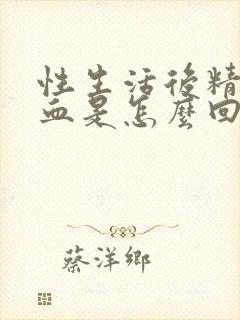 性生活後精
血是怎麼回
蔡洋鄉